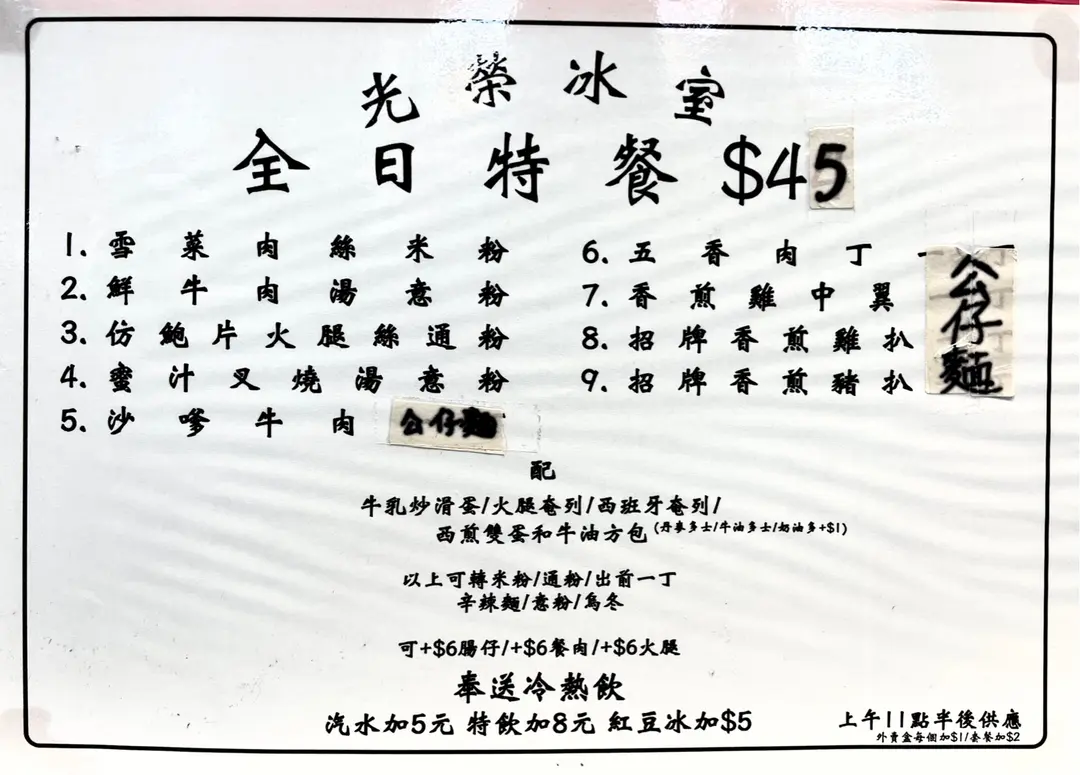 光榮冰室
全日特餐 $45
1. 雪菜肉絲米粉
2. 鮮牛肉湯意粉
3. 仿鮑片火腿絲通粉
4. 蜜汁叉燒湯意粉
5. 沙嗲牛肉公仔麵
6. 五香肉丁
7. 香煎雞中翼
8. 招牌香煎雞扒
9. 招牌香煎豬扒
公仔麵
配
牛乳炒滑蛋/火腿奄列/西班牙奄列/
西煎雙蛋和牛油方包(丹麥多士/牛油多士/奶油多+$1)
以上可轉米粉/通粉/出前一丁
辛辣麵/意粉/烏冬
可+$6腸仔/+$6餐肉/+$6火腿
奉送冷熱飲
汽水加5元 特飲加8元 紅豆冰加$5
上午11點半後供應
外賣盒每個加$1/套餐加$2